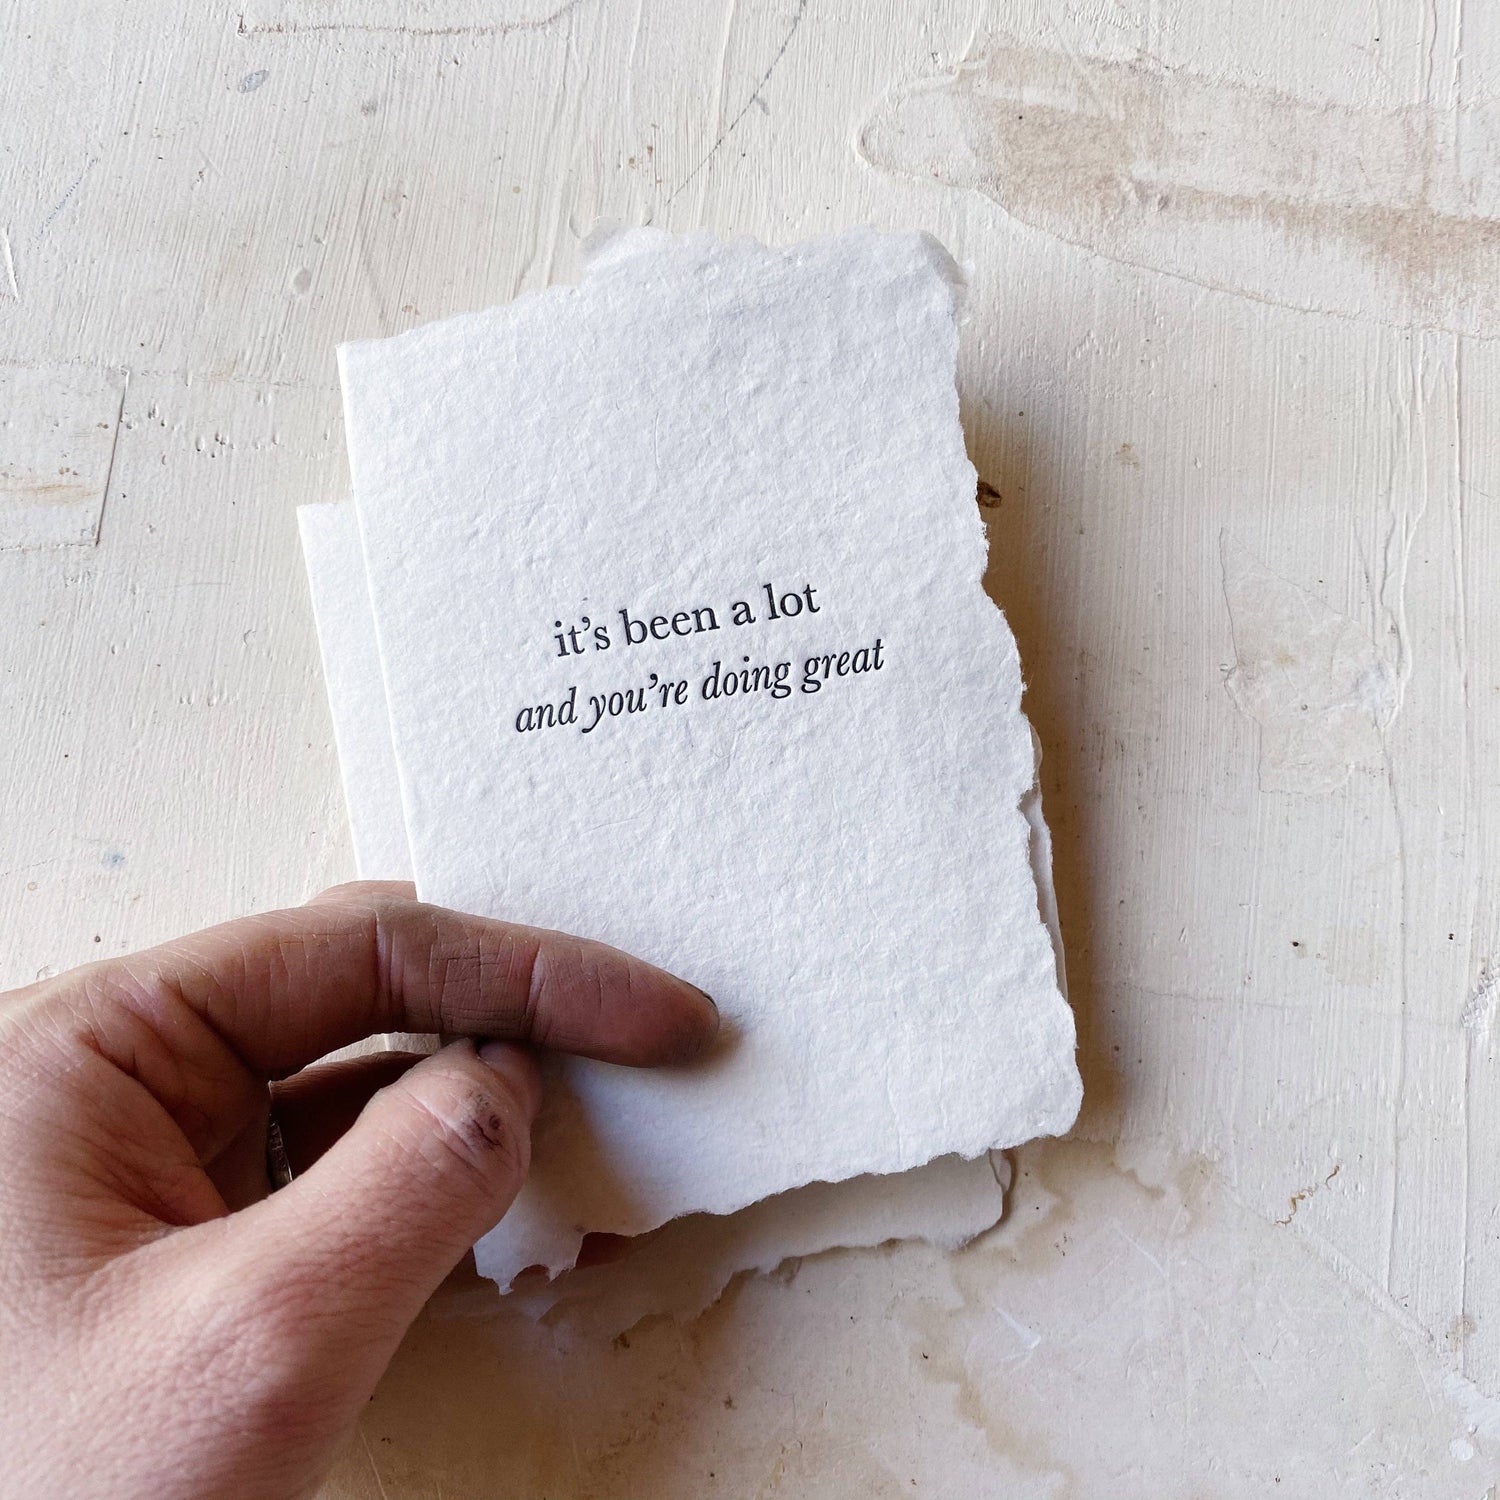 it’s been a lot
and you’re doing great